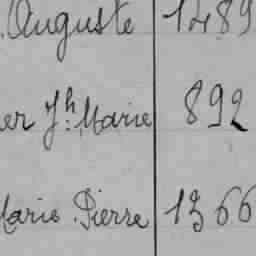 Auguste 1489
er Jh: Marie 892
Marie Pierre 1366